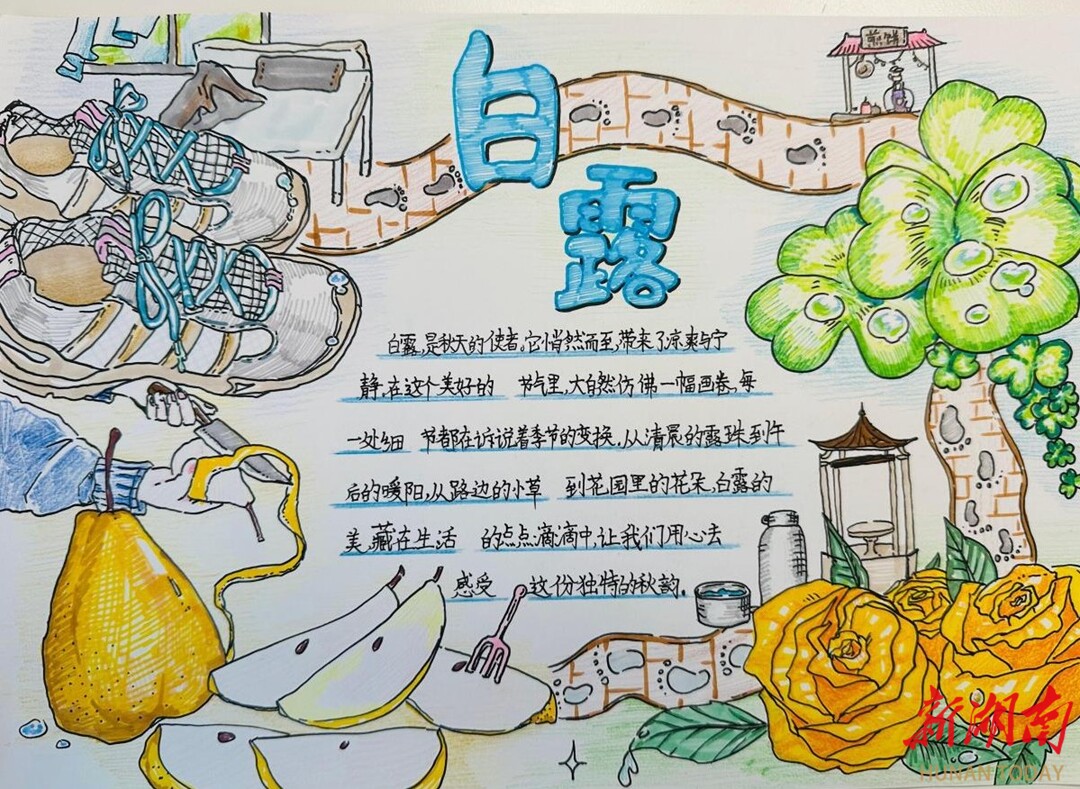 煎饼
白
露
白露,是秋天的使者。它悄然而至,带来了凉爽与宁
静。在这个美好的 节气里,大自然仿佛一幅画卷,每
一处细 节都在诉说着季节的变换,从清晨的露珠到午
后的暖阳,从路边的小草 到花园里的花朵,白露的
美,藏在生活 的点点滴滴中,让我们用心去
感受 这份独特的秋韵。
新湖南
HUNAN TODAY